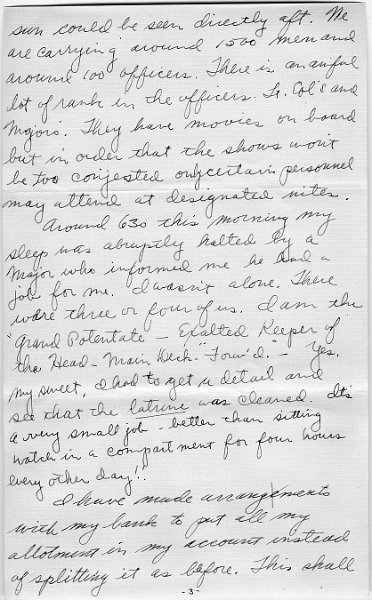 sun could be seen directly aft. We
are carrying around 1500 men and
around 100 officers. There is an awful
lot of rank in the officers. Lt. Col's and
Majors. They have movies on board
but in order that the shows won't
be too conjested only certain personnel
may attend at designated nites.
Around 630 this morning my
sleep was abruptly halted by a
Major who informed me he had a
job for me. I wasn't alone. There
were three or four of us. I am the
"Grand Potentate - Exalted Keeper of
the Head - Main Deck - Forw'd." - Yes,
my sweet, I had to get a detail and
see that the latrine was cleaned. It's
a very small job - better than sitting
watch in a compartment for four hours
every other day!!
I have made arrangements
with my bank to put all my
allotment in my account instead
of splitting it as before. This shall
-3-